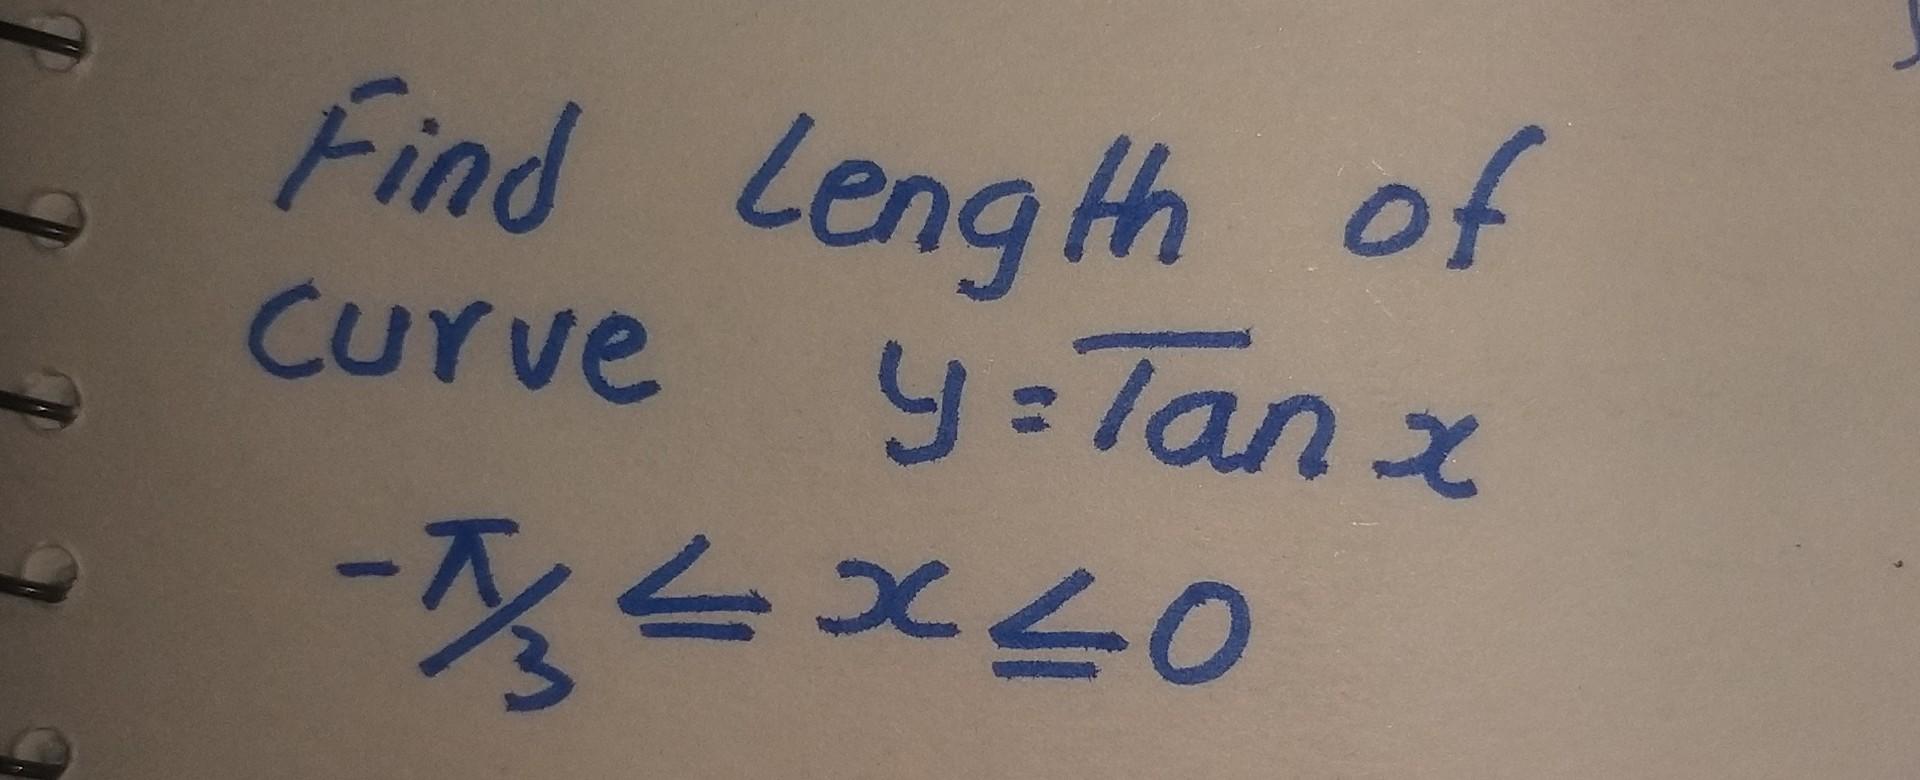 Find Length of
curve y = Tan x
-π/3 ≤ x ≤ 0